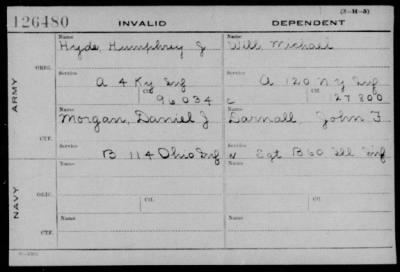 126480 INVALID DEPENDENT (3-H-5)
Name Name
Hyde, Humphrey J Will Michael
ORIG.
Service Service
A 4 Ky Inf A 120 N Y Inf
Ctf. Ctf.
96034 C 127800
ARMY
Name Name
Morgan, Daniel J Darnall John F
CTF.
Service Service
B 114 Ohio Inf N Sgt B 60 Ill Inf
Name Name
ORIG.
Service Service
NAVY
Name Name
CTF.
Service Service